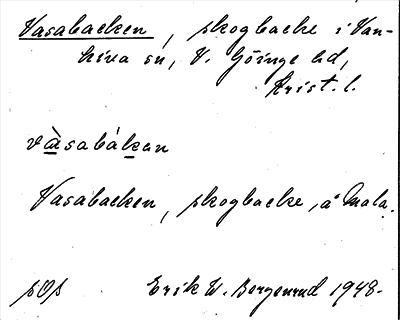 Vasabacken, skogbacke i Van-
kiva sn, V. Göinge hd,
Krist. l.
vàsabákan
Vasabacken, skogbacke, å Mala.
pOp Erik W. Borgenrud 1948.